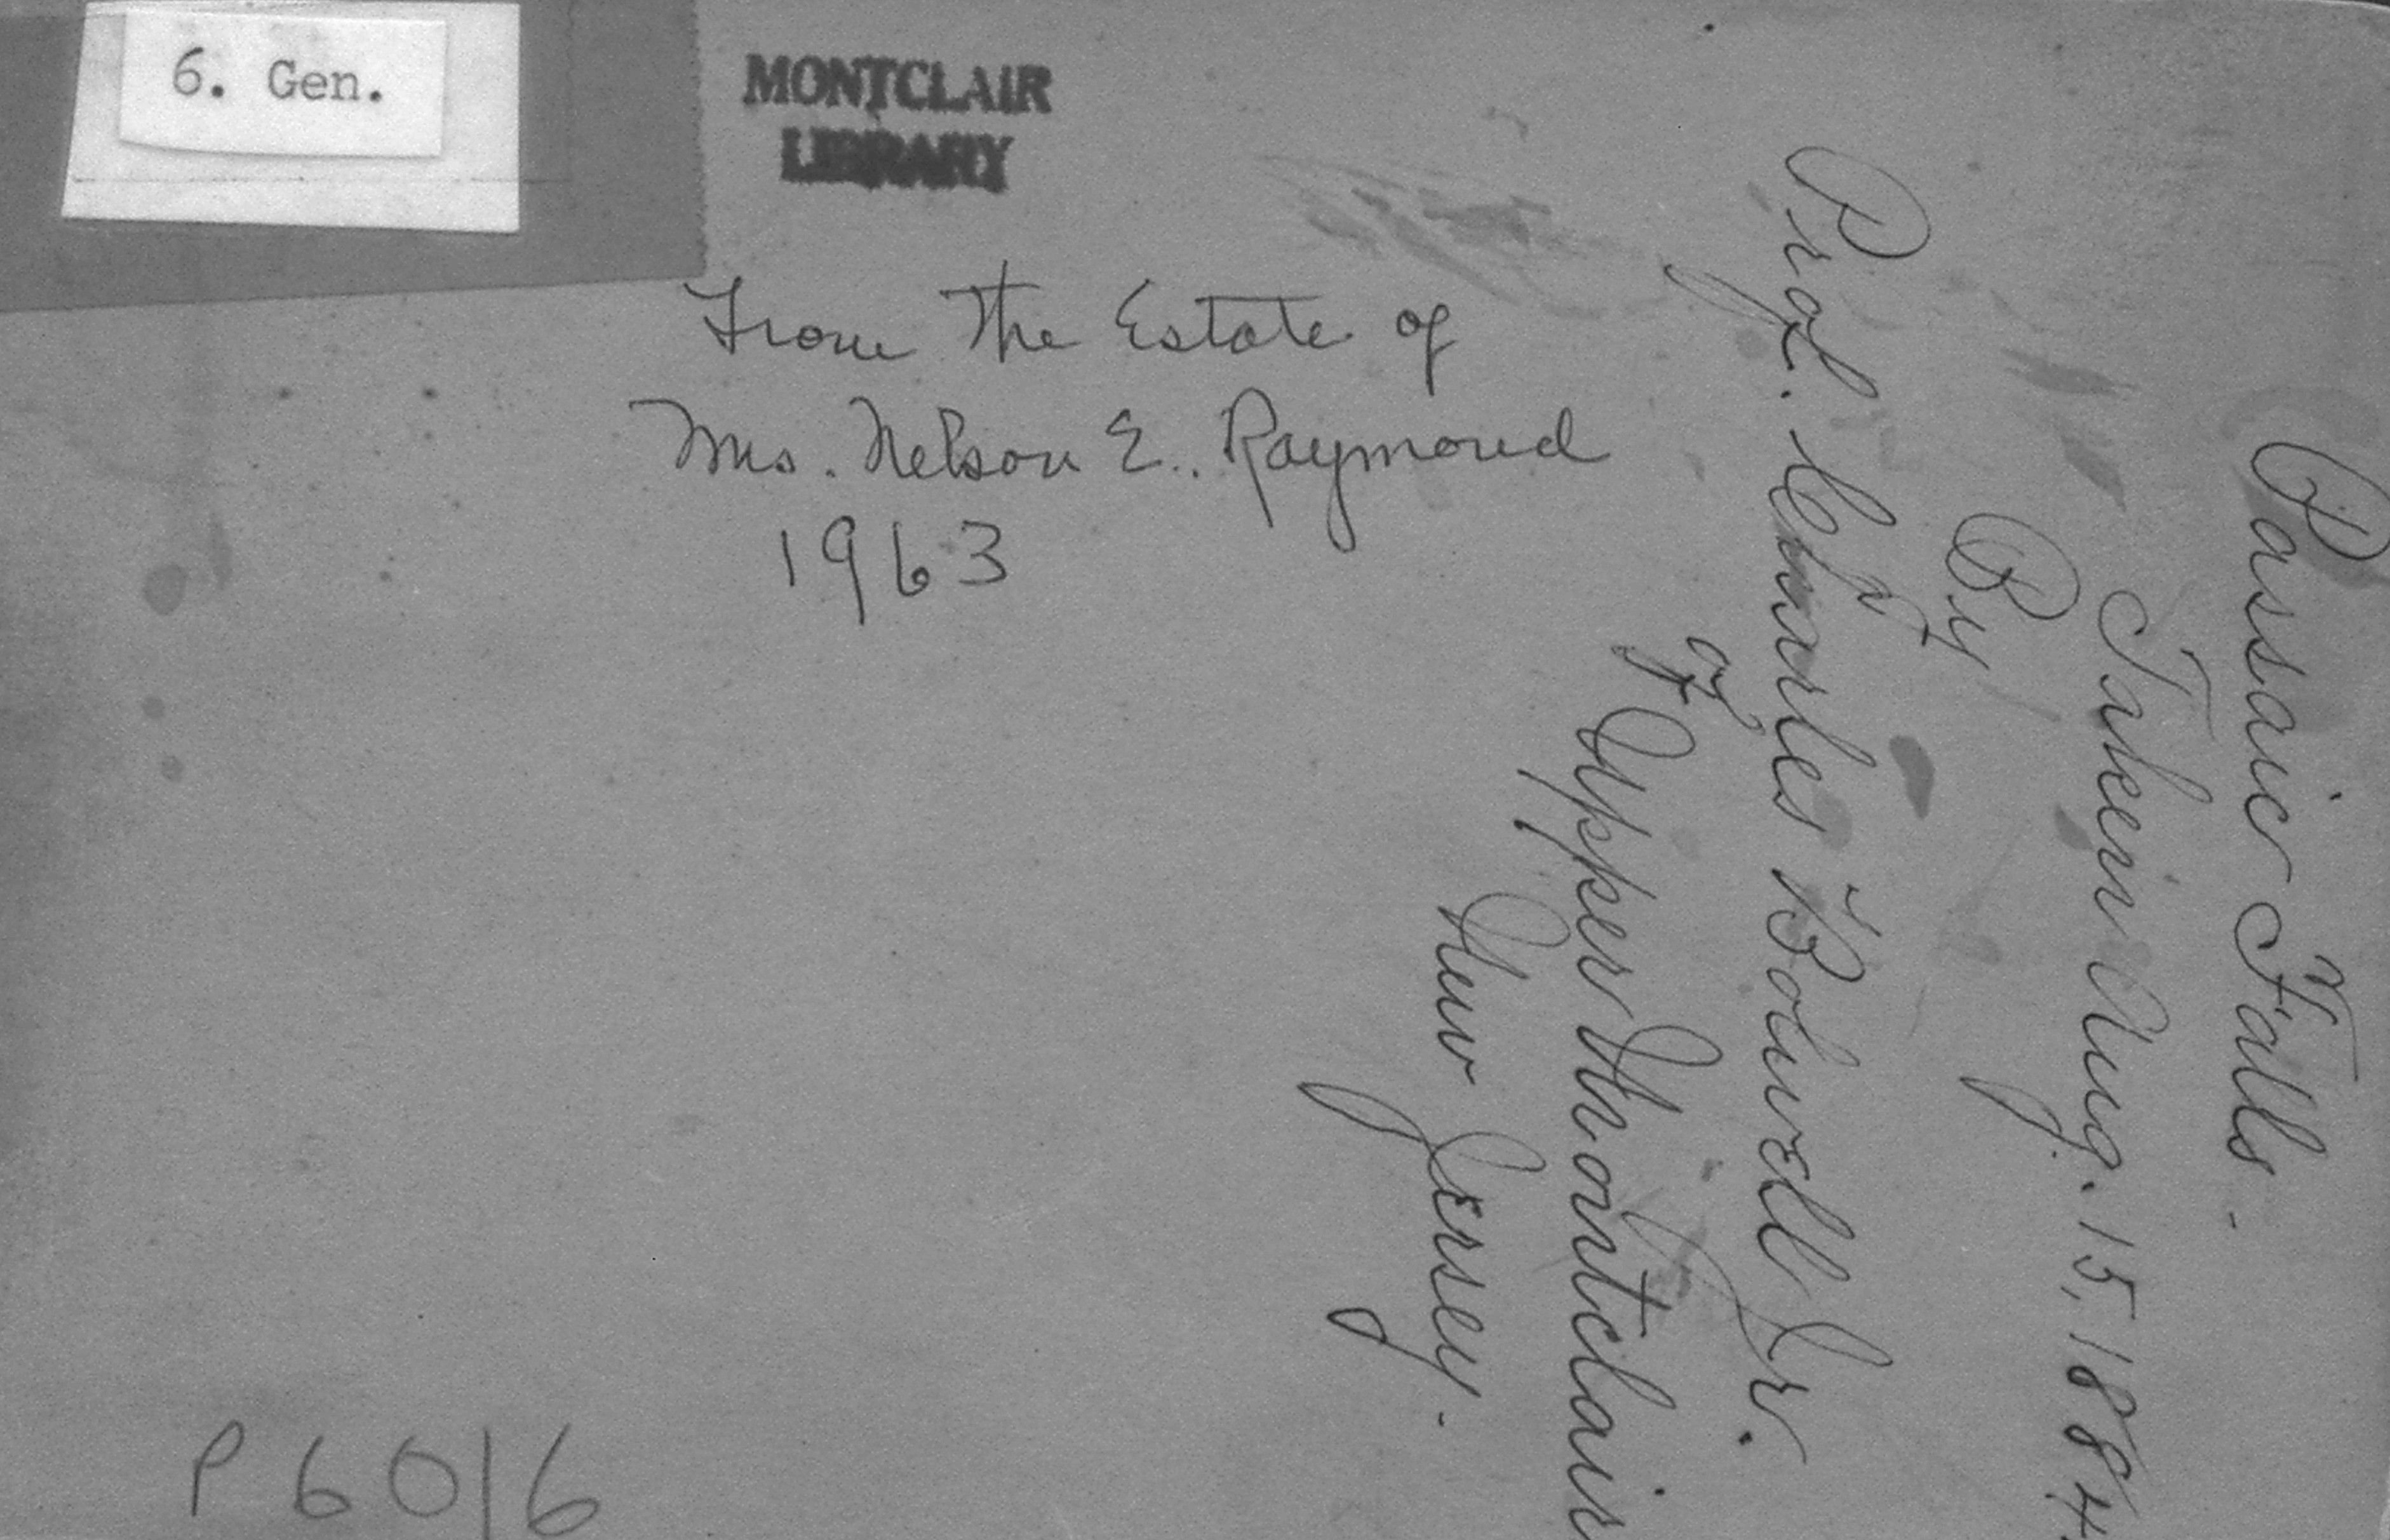 6. Gen.
MONTCLAIR
LIBRARY
From the Estate of
Mrs. Nelson E. Raymond
1963
Passaic Falls.
Taken Aug. 15, 1884
By
Prof. Charles Bolwell Jr.
of
Upper Montclair
New Jersey.
P6016